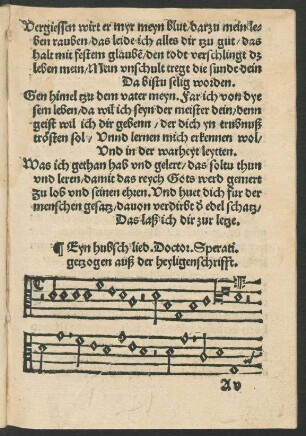 Vergiessen wirt er myr meyn blut/darzu mein le-
ben rauben/das leide ich alles dir tzu gut/das
halt mit festem glaubẽ/den todt verschlingt dz
leben mein/Mein vnschult tregt die sunde dein
Da bistu selig worden.
Gen himel tzu dem vater meyn. Far ich von dye
sem leben/da wil ich seyn der meister dein/denn
geist wil ich dir gebenn/der dich yn trubnuß
trösten sol/Vnnd lernen mich erkennen wol/
Vnd in der warheyt leytten.
Was ich gethan hab vnd gelert/das soltu thun
vnd leren/damit das reych Gots werd gemert
Zu lob vnd seinen ehren. Vnd huet dich fur der
menschen gesatz/dauon verdirbt ð edel schatz/
Das laß ich dir zur letze.
¶ Eyn hubsch lied. Doctor. Sperati.
getzogen auß der heyligenschrifft.
A v